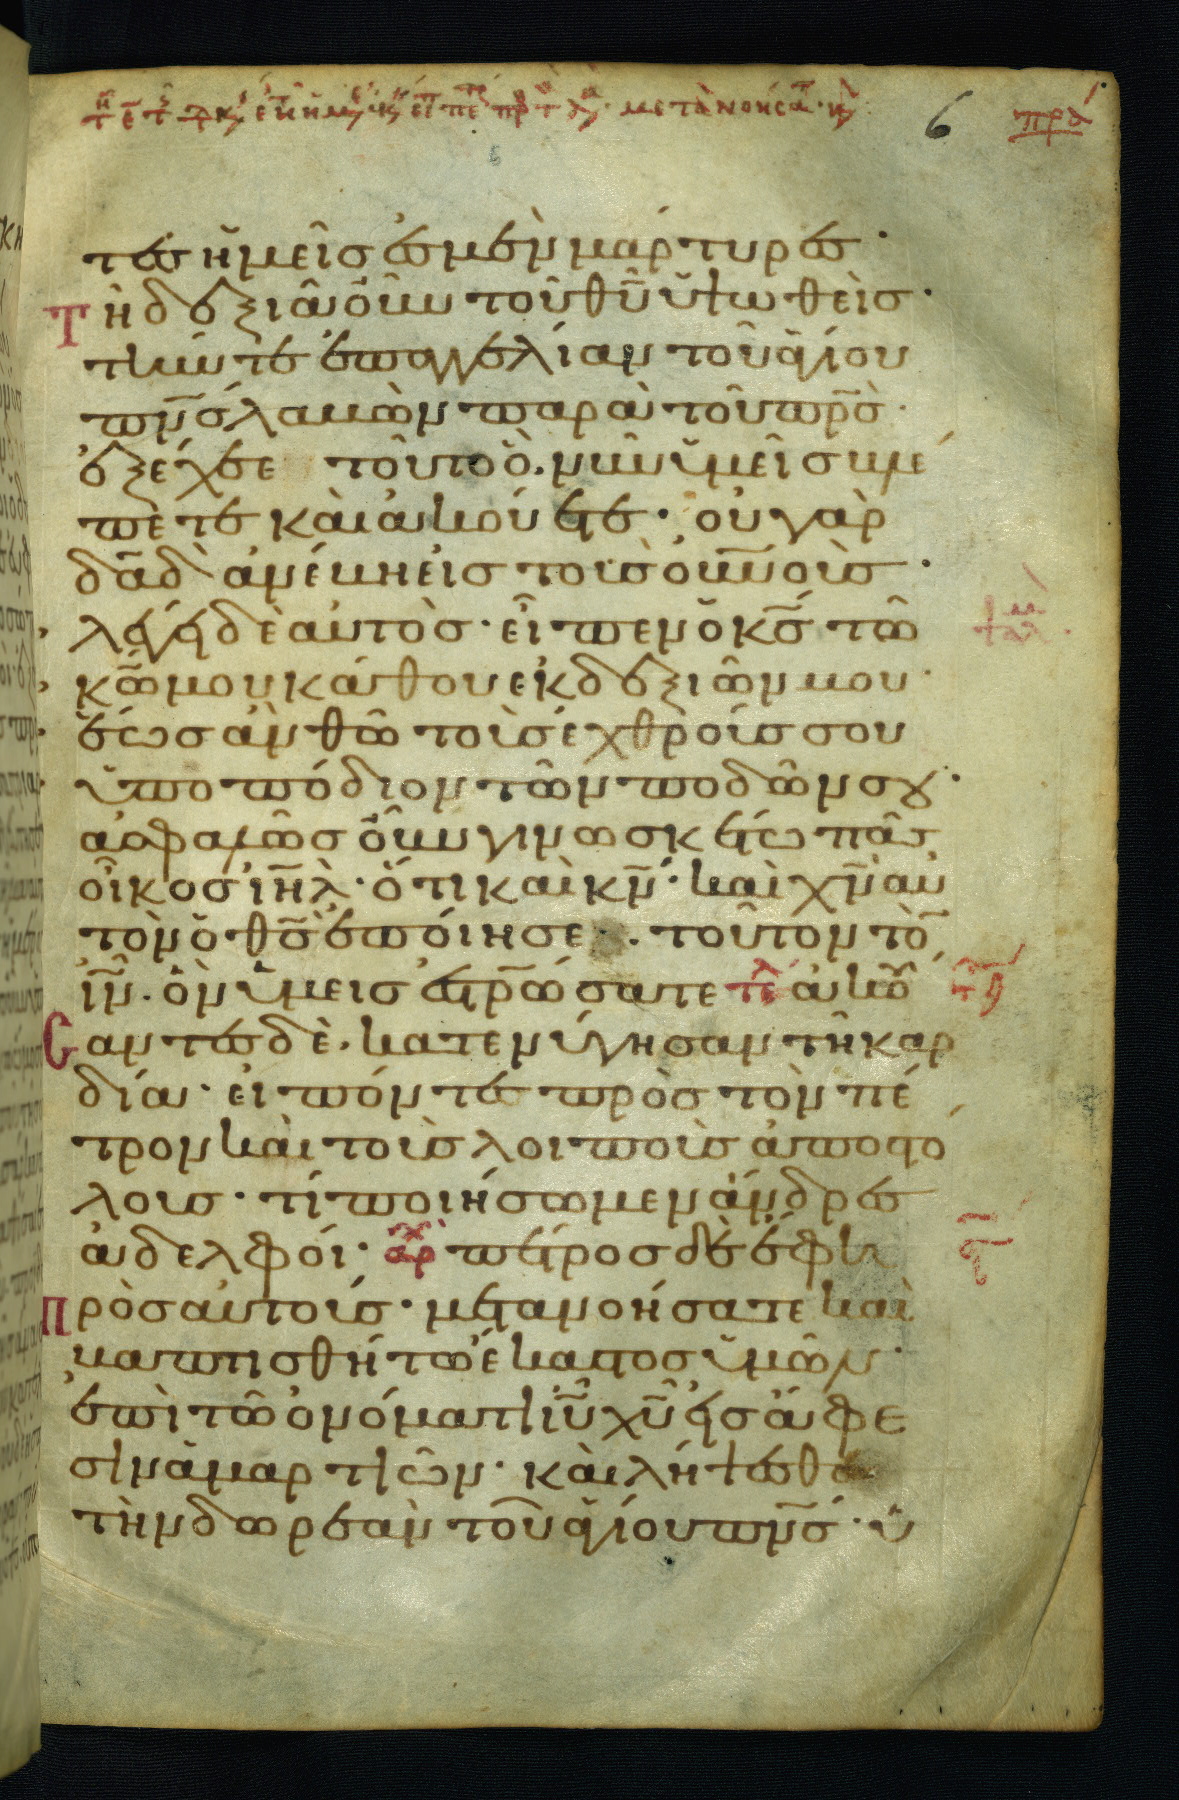 6 πρα
τες ἡμεῖς ἐσμὲν μάρτυρες·
Τῆ δεξιᾶ οὖν τοῦ θυ ὑψωθεὶς·
τήν τε ἐπαγγελίαν τοῦ ἁγίου
πνς λαβὼν παρὰ τοῦ πρς·
ἐξέχεε τοῦτο ὃ νῦν ὑμεῖς βλέ
πετε καὶ ἀκούετε· οὐ γὰρ
δαδ ἀνέβη εἰς τοὺς οὐνοὺς·
λέγει δὲ αὐτὸς· εἶπεν ὁ κς τῶ
κω μου κάθου ἐκ δεξιῶν μου·
ἕως ἂν θῶ τοὺς ἐχθρούς σου
ὑποπόδιον τῶν ποδῶν σου·
ἀσφαλῶς οὖν γινωσκέτω πᾶς
οἶκος ιηλ· ὅτι καὶ κν· καὶ χν αὐ
τὸν ὁ θς ἐποίησε· τοῦτον τὸν
ιν· ὃν ὑμεῖς ἐστρώσατε τε ἀκού
Σαντες δὲ· κατενύγησαν τῆ καρ
δία· εἰπόντες πρὸς τὸν πέ
τρον καὶ τοὺς λοιποὺς ἀποστό
λους· τί ποιήσωμεν ἄνδρες
ἀδελφοί· αρχ πέτρος δὲ ἔφη
Πρὸς αὐτούς· μετανοήσατε καὶ
βαπτισθήτω ἕκαστος ὑμῶν·
ἐπὶ τῶ ὀνόματι ιυ χυ εἰς ἄφε
σιν ἁμαρτιῶν· καὶ λήψεσθε
τὴν δωρεὰν τοῦ ἁγίου πνς· ὑ